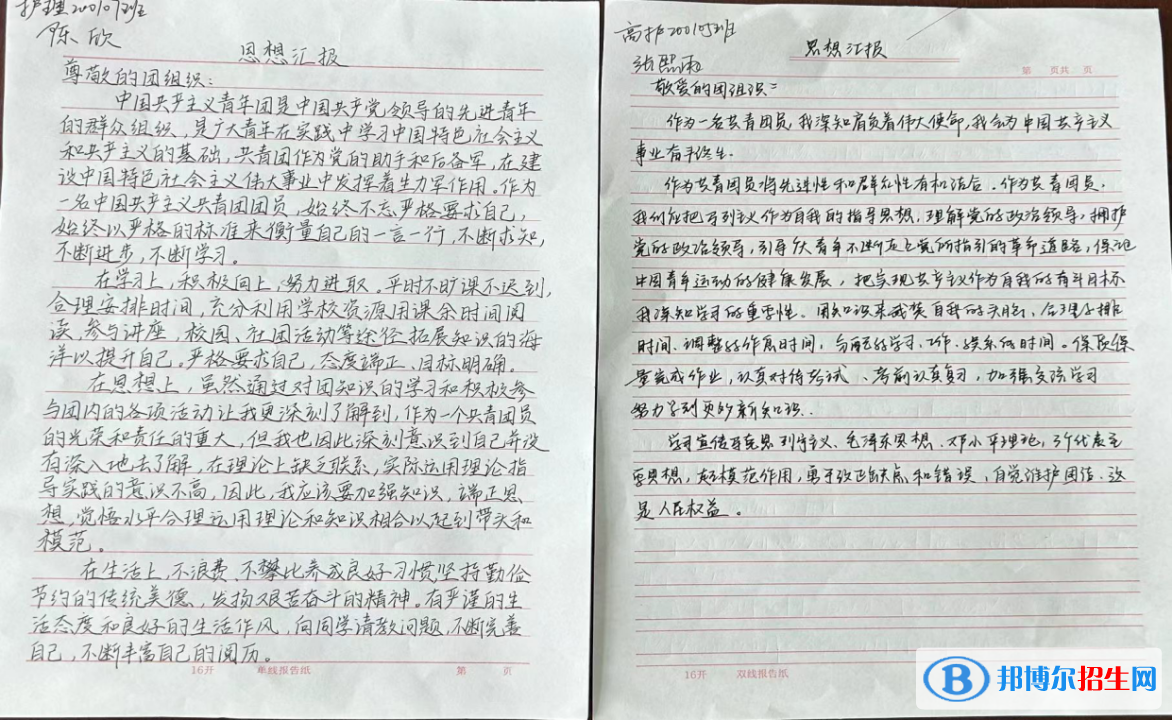 护理200107班
陈欣
思想汇报
尊敬的团组织：
中国共产主义青年团是中国共产党领导的先进青年
的群众组织，是广大青年在实践中学习中国特色社会主义
和共产主义的基础，共青团作为党的助手和后备军，在建
设中国特色社会主义伟大事业中发挥着生力军作用。作为
一名中国共产主义共青团团员，始终不忘严格要求自己，
始终以严格的标准来衡量自己的一言一行，不断求知，
不断进步，不断学习。
在学习上，积极向上，努力进取，平时不旷课不迟到，
合理安排时间，充分利用学校资源用课余时间阅
读，参与讲座，校园、社团活动等途径拓展知识的海
洋以提升自己。严格要求自己，态度端正、目标明确。
在思想上，虽然通过对团知识的学习和积极参
与团内的各项活动让我更深刻了解到，作为一个共青团员
的光荣和责任的重大，但我也因此深刻意识到自己并没
有深入地去了解，在理论上缺乏联系，实际运用理论指
导实践的意识不高，因此，我应该要加强知识，端正思
想，觉悟水平合理运用理论和知识相合以起到带头和
模范。
在生活上，不浪费、不攀比养成良好习惯坚持勤俭
节约的传统美德，发扬艰苦奋斗的精神。有严谨的生
活态度和良好的生活作风，向同学请教问题，不断完善
自己，不断丰富自己的阅历。
16开 单线报告纸 第 页
高护200105班
张熙雨
思想汇报
第 页共 页
敬爱的团组织：
作为一名共青团员，我深知肩负着伟大使命，我会为中国共产主义
事业奋斗终生.
作为共青团员将先进性和群众性有机结合。作为共青团员，
我们应把马列主义作为自我的指导思想，理解党的政治领导，拥护
党的政治领导，引导广大青年不断走上党所指引的革命道路，保证
中国青年运动的健康发展，把实现共产主义作为自我的奋斗目标
我深知学习的重要性。用知识来武装自我的头脑，合理安排
时间、调整好作息时间，分配好学习、工作、娱乐的时间。保质保
量完成作业，认真对待考试、考前认真复习，加强交流学习
努力学到更多的新知识.
学习宣传马克思列宁主义、毛泽东思想、邓小平理论，三个代表重
要思想，起模范作用，勇于改正缺点和错误，自觉维护团结.
是人民权益。
16开 双线报告纸
邦博尔招生网